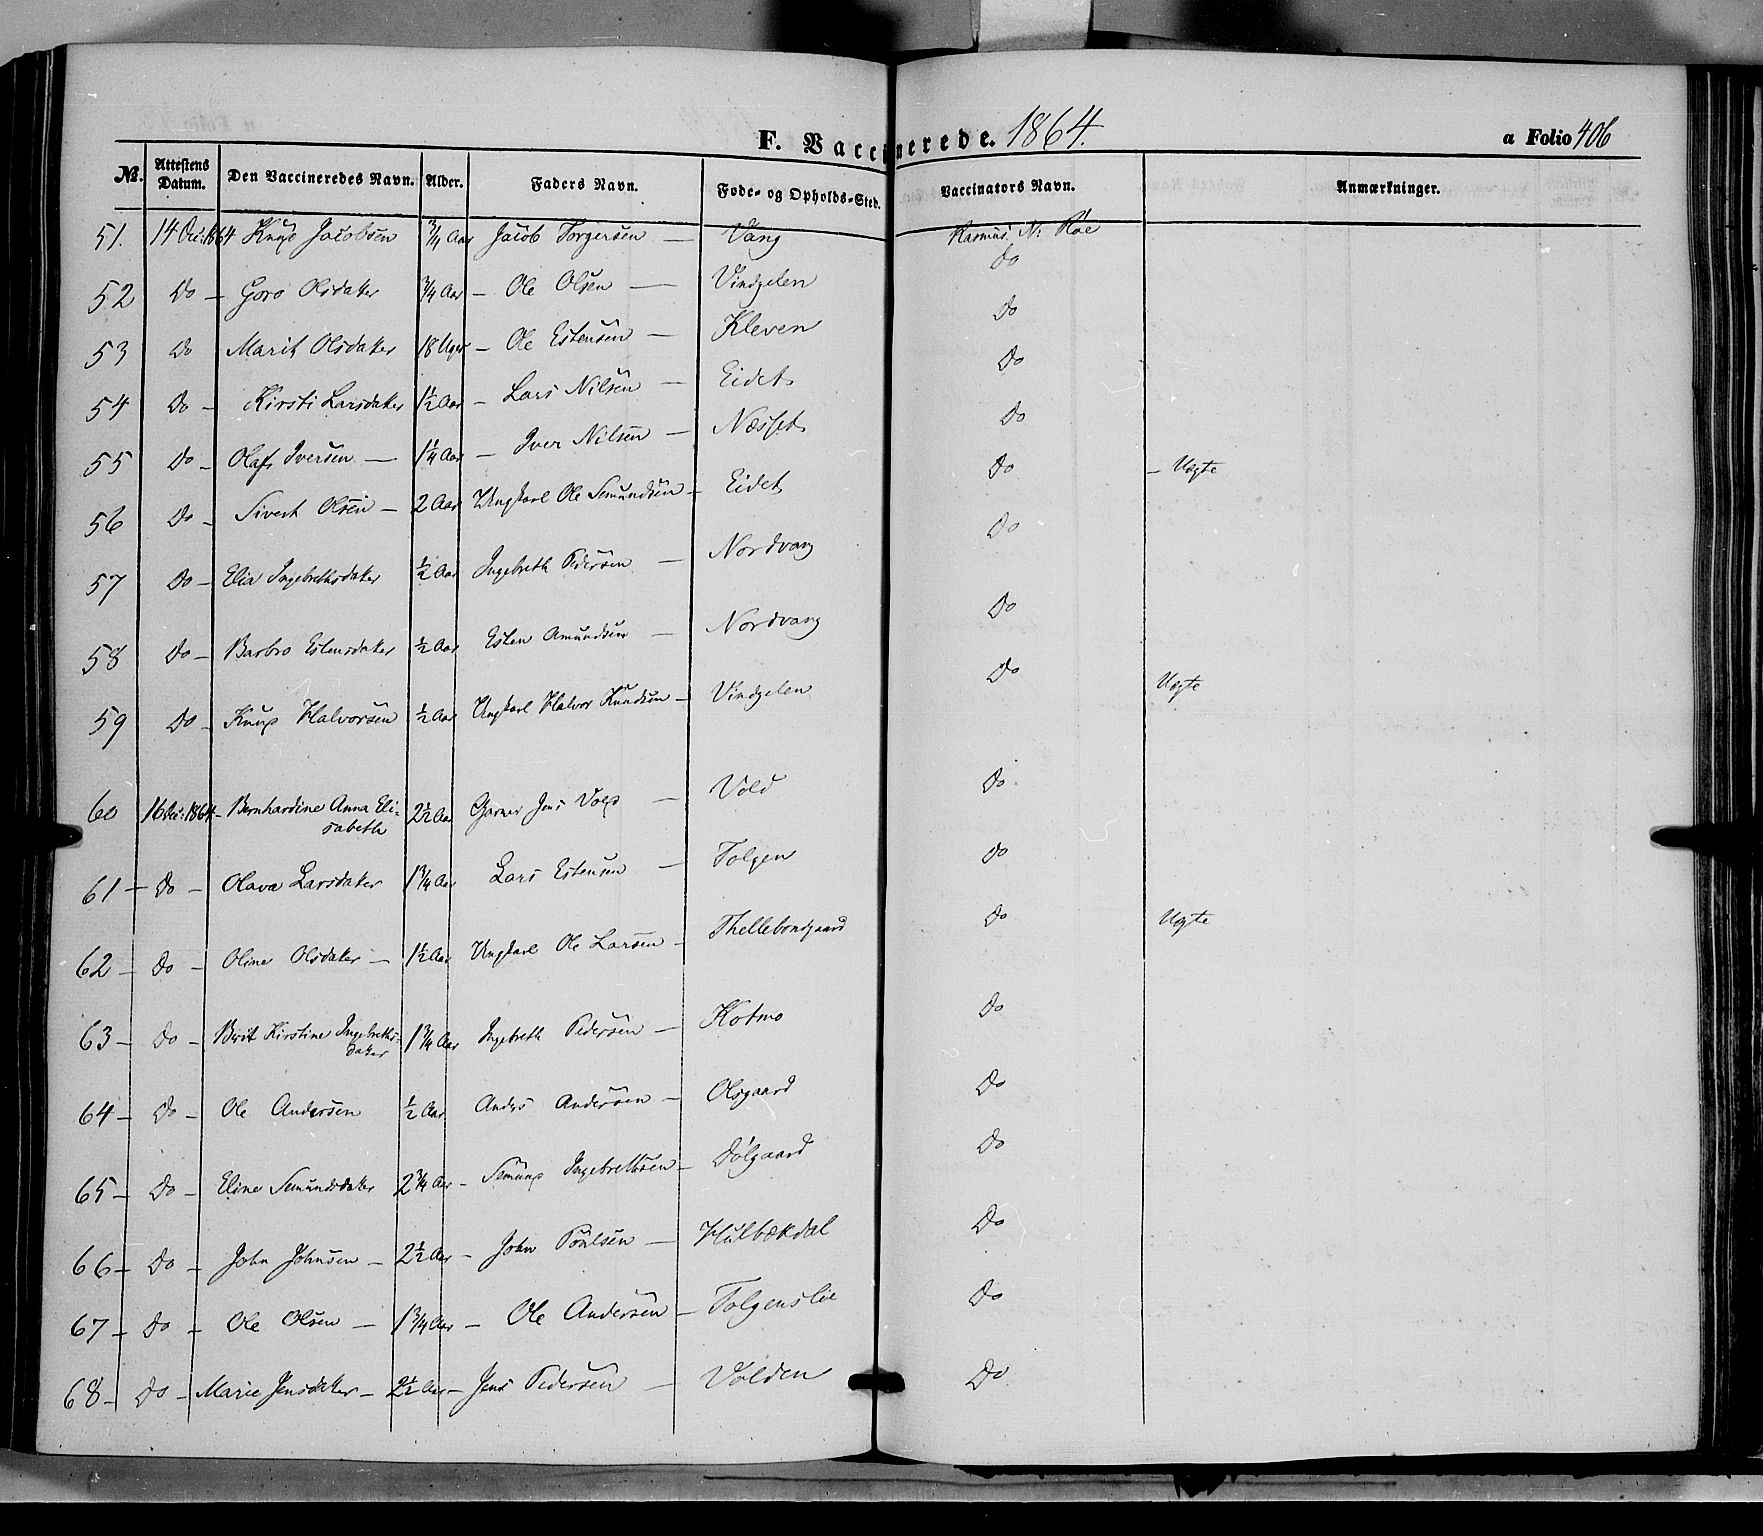 F. Vaccinerede. 1864.
a Folio 406
No. Attestens Datum. Den Vaccineredes Navn. Alder. Faders Navn. Føde- og Opholds-Sted. Vaccinators Navn. Anmærkninger.
51. 14 Oct: 1864 Knud Jacobsen 3/4 Aar Jacob Torgersen — Vang Rasmus N: Røe
52 Do — Goro Olsdater 3/4 Aar — Ole Olsen — Vindgelen Do
53 Do Marit Olsdater 18 Uger — Ole Estensen — Kleven Do
54 Do — Kirsti Larsdater 1 1/2 Aar — Lars Nilsen — Eidet Do
55 Do — Olaf Iversen — 1 1/4 Aar — Iver Nilsen — Næsset Do
56 Do — Sivert Olsen — 2 Aar Ungkarl Ole Semundsen — Eidet Do — Uægte
57 Do — Elia Ingebrethsdater 1/2 Aar Ingebreth Pedersen — Nordvang Do
58 Do — Barbro Estensdater 1/2 Aar Esten Amundsen — Nordvang Do
59 Do — Knud Halvorsen 1/2 Aar Ungkarl Halvor Knudsen — Vindgelen Do Uægte
60 16 1864 — Bernhardine Anna Eli-
sabeth 2 1/2 Aar Garver Jens Vold — Vold Do
61 — Do — Olava Larsdater 1 3/4 Aar Lars Estensen — Tolgen Do
62 — Do — Oline Olsdater — 1 1/2 Aar Ungkarl Ole Larsen — Thellebondgaard Do Uægte
63 — Do — Berit Kirstine Ingebreths-
dater 1 3/4 Aar Ingebreth Pedersen — Kotmo Do
64 — Do — Ole Andersen 1/2 Aar Anders Andersen — Olsgaard Do
65 — Do — Eline Semundsdater 2 3/4 Aar — Semund Ingebrethsen — Dølgaard Do
66 — Do — John Johnsen — 2 1/2 Aar — John Poulsen — Hulbækdal Do
67 — Do — Ole Olsen — 1 3/4 Aar — Ole Andersen — Tolgenslie Do
68 — Do — Marie Jensdater — 2 1/2 Aar — Jens Pedersen — Volden Do